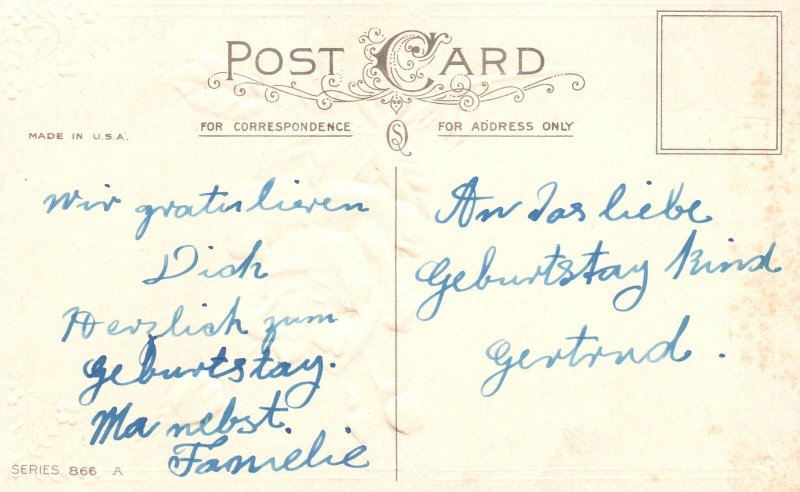 POST CARD
FOR CORRESPONDENCE
FOR ADDRESS ONLY
MADE IN U.S.A.
Wir gratulieren
Dich
Herzlich zum
Geburtstag.
Ma nebst.
Familie
SERIES 866 A
An das liebe
Geburtstag Kind
Gertrud.